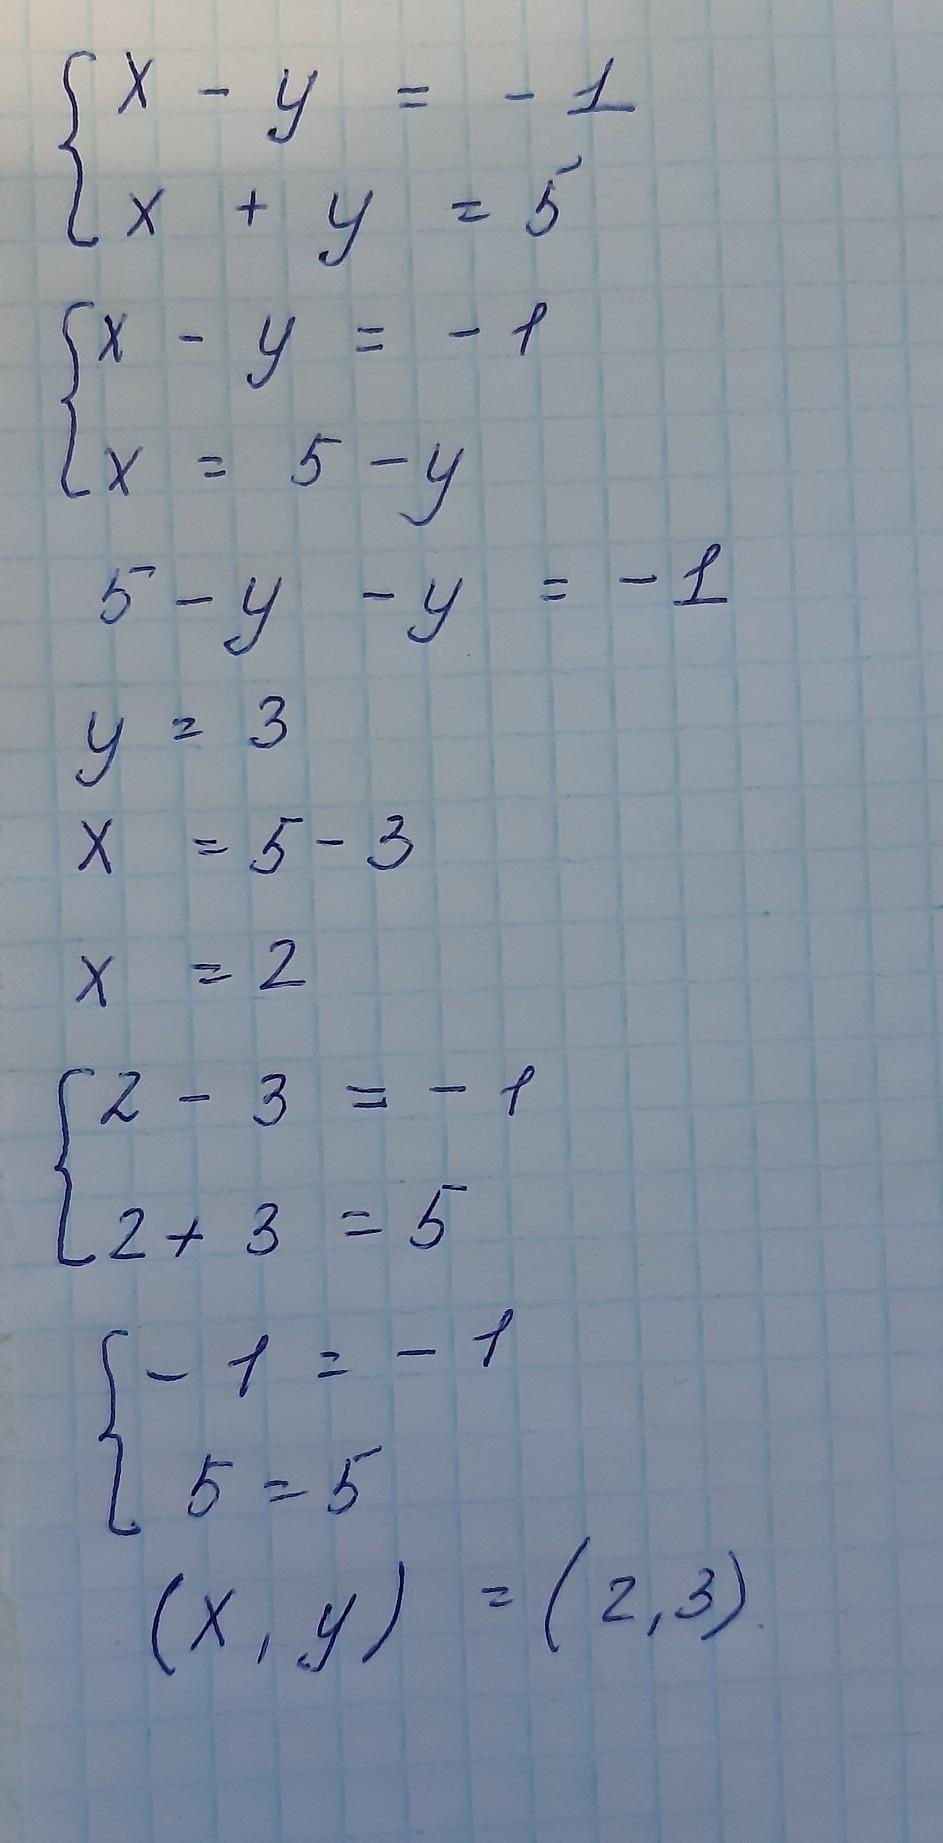 { x - y = - 1
x + y = 5
{ x - y = - 1
x = 5 - y
5 - y - y = - 1
y = 3
x = 5 - 3
x = 2
{ 2 - 3 = - 1
2 + 3 = 5
{ - 1 = - 1
5 = 5
(x, y) = (2, 3).